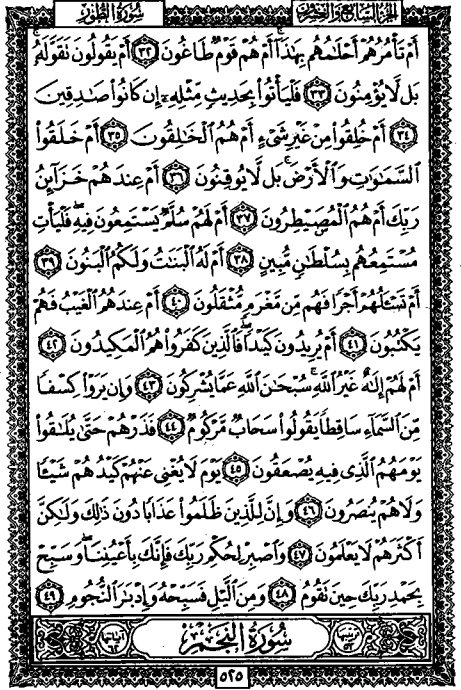 الجزء السابع والعشرون سورة الطور
أَمْ تَأْمُرُهُمْ أَحْلَٰمُهُم بِهَٰذَآ ۚ أَمْ هُمْ قَوْمٌ طَاغُونَ ٣٢ أَمْ يَقُولُونَ تَقَوَّلَهُۥ ۚ
بَل لَّا يُؤْمِنُونَ ٣٣ فَلْيَأْتُوا۟ بِحَدِيثٍ مِّثْلِهِۦٓ إِن كَانُوا۟ صَٰدِقِينَ
٣٤ أَمْ خُلِقُوا۟ مِنْ غَيْرِ شَىْءٍ أَمْ هُمُ ٱلْخَٰلِقُونَ ٣٥ أَمْ خَلَقُوا۟
ٱلسَّمَٰوَٰتِ وَٱلْأَرْضَ ۚ بَل لَّا يُوقِنُونَ ٣٦ أَمْ عِندَهُمْ خَزَآئِنُ
رَبِّكَ أَمْ هُمُ ٱلْمُصَۣيْطِرُونَ ٣٧ أَمْ لَهُمْ سُلَّمٌ يَسْتَمِعُونَ فِيهِ ۖ فَلْيَأْتِ
مُسْتَمِعُهُم بِسُلْطَٰنٍ مُّبِينٍ ٣٨ أَمْ لَهُ ٱلْبَنَٰتُ وَلَكُمُ ٱلْبَنُونَ ٣٩
أَمْ تَسْـَٔلُهُمْ أَجْرًا فَهُم مِّن مَّغْرَمٍ مُّثْقَلُونَ ٤٠ أَمْ عِندَهُمُ ٱلْغَيْبُ فَهُمْ
يَكْتُبُونَ ٤١ أَمْ يُرِيدُونَ كَيْدًا ۖ فَٱلَّذِينَ كَفَرُوا۟ هُمُ ٱلْمَكِيدُونَ ٤٢
أَمْ لَهُمْ إِلَٰهٌ غَيْرُ ٱللَّهِ ۚ سُبْحَٰنَ ٱللَّهِ عَمَّا يُشْرِكُونَ ٤٣ وَإِن يَرَوْا۟ كِسْفًا
مِّنَ ٱلسَّمَآءِ سَاقِطًا يَقُولُوا۟ سَحَابٌ مَّرْكُومٌ ٤٤ فَذَرْهُمْ حَتَّىٰ يُلَٰقُوا۟
يَوْمَهُمُ ٱلَّذِى فِيهِ يُصْعَقُونَ ٤٥ يَوْمَ لَا يُغْنِى عَنْهُمْ كَيْدُهُمْ شَيْـًٔا
وَلَا هُمْ يُنصَرُونَ ٤٦ وَإِنَّ لِلَّذِينَ ظَلَمُوا۟ عَذَابًا دُونَ ذَٰلِكَ وَلَٰكِنَّ
أَكْثَرَهُمْ لَا يَعْلَمُونَ ٤٧ وَٱصْبِرْ لِحُكْمِ رَبِّكَ فَإِنَّكَ بِأَعْيُنِنَا ۖ وَسَبِّحْ
بِحَمْدِ رَبِّكَ حِينَ تَقُومُ ٤٨ وَمِنَ ٱلَّيْلِ فَسَبِّحْهُ وَإِدْبَٰرَ ٱلنُّجُومِ ٤٩
ترتيبها ٥٣ سُورَةُ النَّجْمِ آياتها ٦٢
٥٢٥